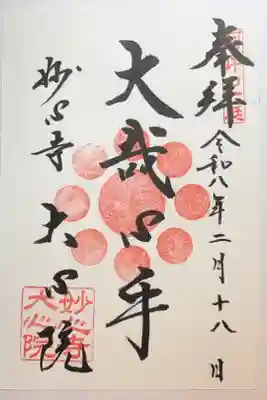 奉拝
令和八年二月十八日
大哉心乎
妙心寺
大心院
妙心寺
大心院